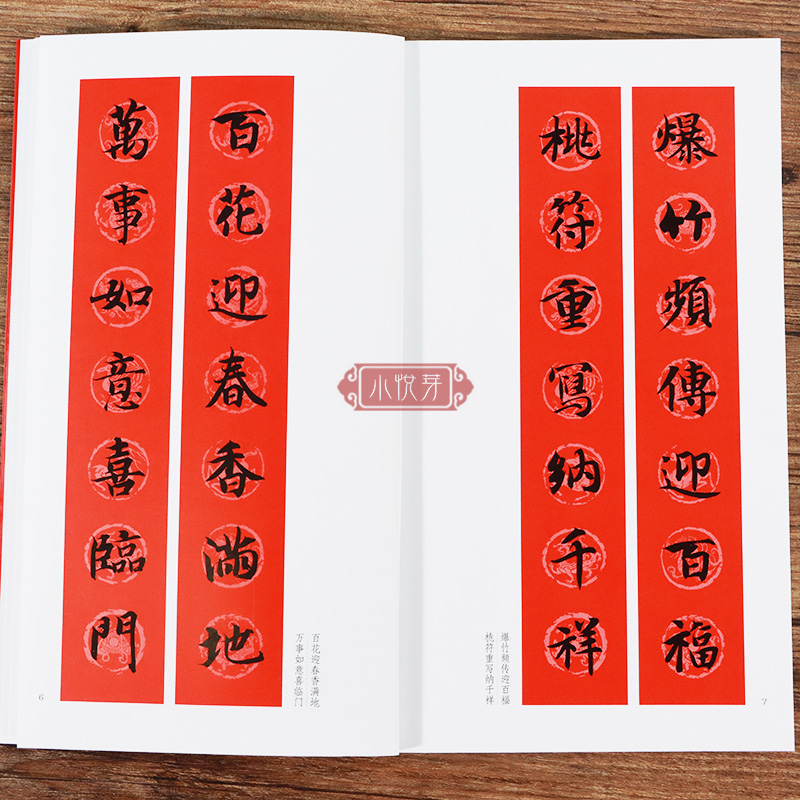 爆竹頻傳迎百福
桃符重寫納千祥
爆竹频传迎百福
桃符重写纳千祥
7
百花迎春香滿地
萬事如意喜臨門
百花迎春香满地
万事如意喜临门
6
小悦芽